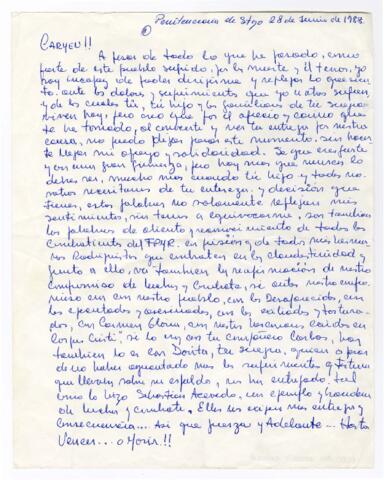 Penitenciaria de Stgo 28 de Junio de 1988.
①
CARMEN!!
A pesar de todo lo que he pasado, como
parte de este pueblo sufrido, por la muerte y el terror, yo
soy incapaz de poder dirigirme y reflejar lo que siento
ante los dolores y sufrimientos que
y de los cuales tú, tu hijo y los familiares de tu suegra
viven hoy, pero creo que por el aprecio y cariño que
te he tomado, al conocerte y ver tu entrega por nuestra
causa, no puedo dejar pasar este momento, sin hacer-
te llegar mi apoyo y solidaridad. Se que eres fuerte
y con mucha firmeza, pero hoy más que nunca lo
debes ser, mucho más cuando tu hijo y todos no-
sotros necesitamos de tu entereza y decisión que
tienes, estas palabras no solamente reflejan mis
sentimientos, sin temor a equivocarme, son también
las palabras de aliento y reconocimiento de todos los
combatientes del FPMR. en prisión y de todos mis herma-
nos Rodriguistas que combaten en la clandestinidad y
junto a ello, va también la reafirmación de nuestro
compromiso de lucha y combate, si antes nuestro compro-
miso era con nuestro pueblo, con los Desaparecidos, con
los ejecutados y asesinados, con los exiliados y tortura-
dos, con Carmen Gloria, con nuestros hermanos caídos en
Corpus Cristi, si lo era con tu compañero Carlos, hoy
también lo es con Dorita, tu suegra, quien a pesar
de no haber aguantado más los sufrimientos y tortura
que llevaba sobre su espalda, nos ha entregado tal
como lo hizo Sebastian Acevedo, un ejemplo y
de lucha y combate. Ellos nos exigen más entrega y
consecuencia.... Así que fuerza y Adelante... Hasta
Vencer... o Morir.!!